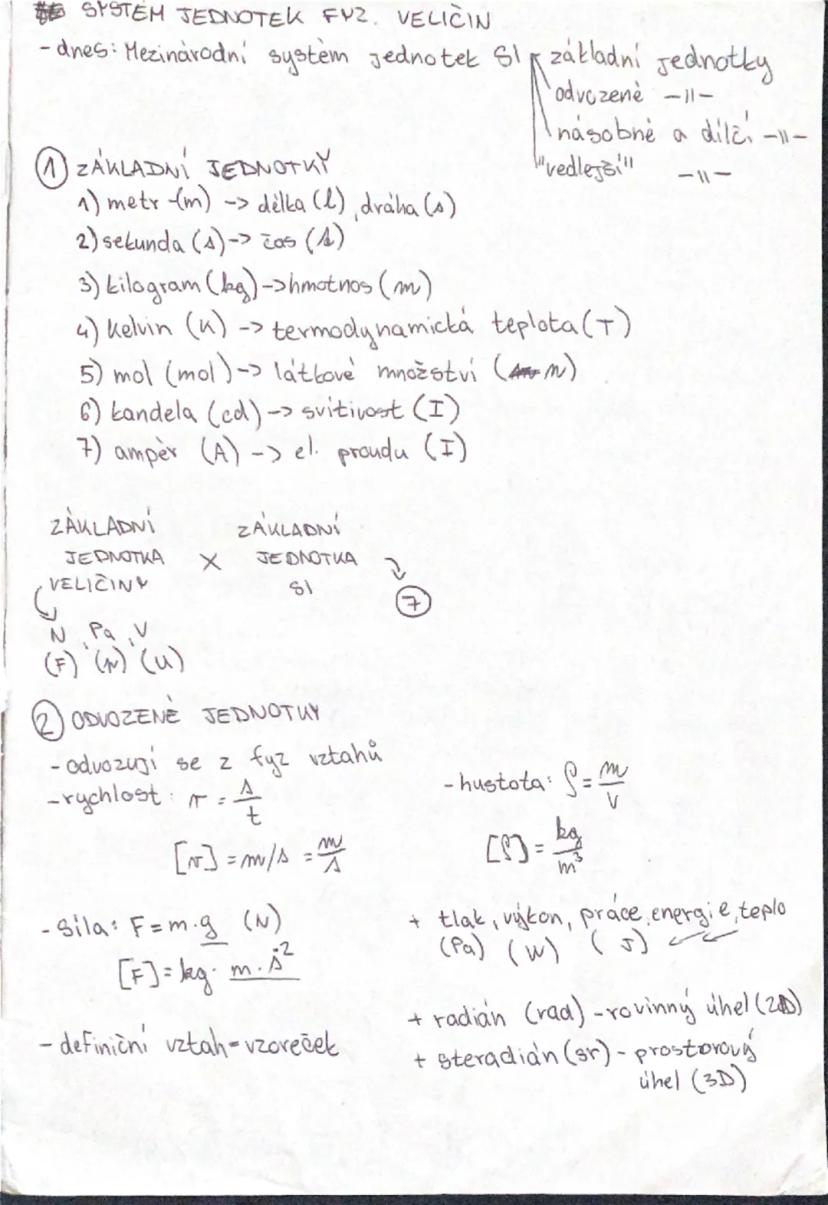 SYSTÉM JEDNOTEK FYZ. VELIČIN
- dnes: Mezinárodní systém jednotek SI základní jednotky
odvozené -11-
násobné a dílčí -11-
"vedlejší" -11-
① ZÁKLADNÍ JEDNOTKY
1) metr (m) -> délka (l), dráha (s)
2) sekunda (s) -> čas (t)
3) kilogram (kg) -> hmotnos (m)
4) kelvin (K) -> termodynamická teplota (T)
5) mol (mol) -> látkové množství (n)
6) kandela (cd) -> svítivost (I)
7) ampér (A) -> el. proudu (I)
ZÁKLADNÍ JEDNOTKA VELIČINY × ZÁKLADNÍ JEDNOTKA SI
⑦
N, Pa, V
(F) (p) (U)
② ODVOZENÉ JEDNOTKY
- odvozují se z fyz vztahů
- rychlost: v = s/t
[v] = m/s = m/s
- hustota: ρ = m/V
[ρ] = kg/m³
- síla: F = m·g (N)
[F] = kg · m · s̄²
- definiční vztah = vzoreček
+ tlak, výkon, práce, energie, teplo
(Pa) (W) (J)
+ radián (rad) - rovinný úhel (2D)
+ steradián (sr) - prostorový
úhel (3D)